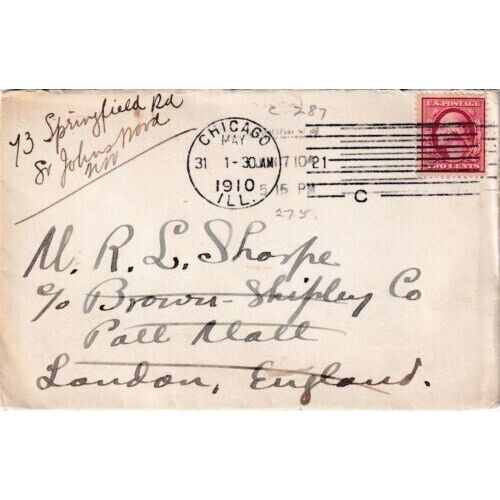 73 Springfield Rd
St Johns Wood
NW
C. 287
CHICAGO
MAY
31 1-30AM
1910
ILL.
7 10 21
5 15 PM
C
275.
U.S. POSTAGE
TWO CENTS
M. R. L. Sharpe
c/o Brown Shipley Co
Pall Mall
London, England.